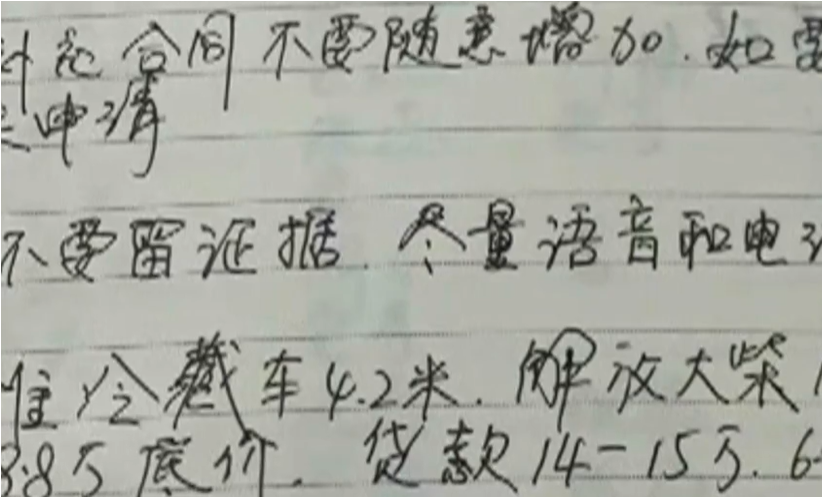 合同 不要随意增加.如需
申请
不要留证据 尽量语音和电
准冷藏车4.2米.解放大柴
3.8万底价. 贷款14-15万.6